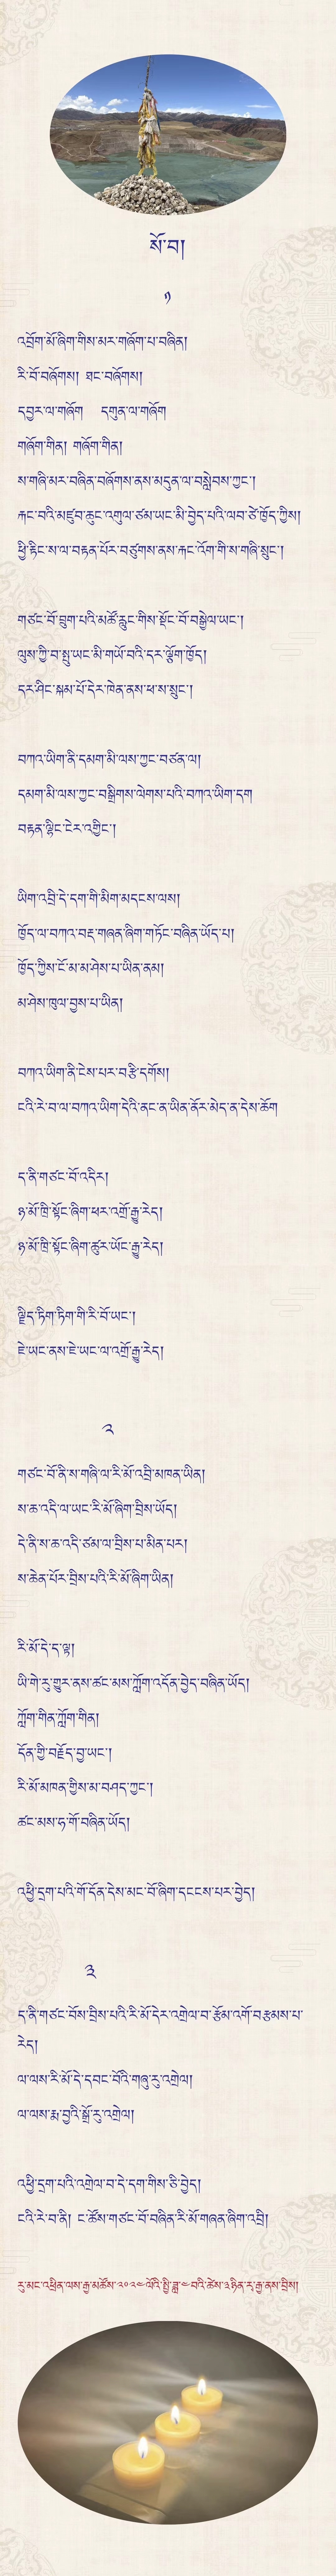 སོ་བ།
༡
འབྲོག་མོ་ཞིག་གིས་མར་གཞོག་པ་བཞིན།
རི་བོ་བཞོགས། ཐང་བཞོགས།
དབྱར་ལ་གཞོག དགུན་ལ་གཞོག
གཞོག་གིན། གཞོག་གིན།
ས་གཞི་མར་བཞིན་བཞོགས་ནས་མདུན་ལ་བསླེབས་ཀྱང་།
རྐང་བའི་མཛུབ་ཆུང་འགུལ་ཙམ་ཡང་མི་བྱེད་པའི་ལབ་ཙེ་ཁྱོད་ཀྱིས།
ཕྱི་རྟིང་ས་ལ་བརྟན་པོར་བཙུགས་ནས་རྐང་འོག་གི་ས་གཞི་སྲུང་།
གཙང་བོ་བྲུག་པའི་མཚོ་རླུང་གིས་སྡོང་བོ་བསྒྱེལ་ཡང་།
ལུས་ཀྱི་བ་སྤུ་ཡང་མི་གཡོ་བའི་དར་ལྕོག་ཁྱོད།
དར་ཤིང་སྐམ་པོ་དེར་ཁེན་ནས་ཕ་ས་སྲུང་།
བཀའ་ཡིག་ནི་དམག་མི་ལས་ཀྱང་བཙན་ལ།
དམག་མི་ལས་ཀྱང་བསྒྲིགས་ལེགས་པའི་བཀའ་ཡིག་དག
བརྟན་ལྷིང་ངེར་འགྱིང་།
ཡིག་འབྲི་དེ་དག་གི་མིག་མདངས་ལས།
ཁྱོད་ལ་བཀའ་བརྡ་གཞན་ཞིག་གཏོང་བཞིན་ཡོད་པ།
ཁྱོད་ཀྱིས་ངོ་མ་མ་ཤེས་པ་ཡིན་ནམ།
མ་ཤེས་ཁུལ་བྱས་པ་ཡིན།
བཀའ་ཡིག་ནི་ངེས་པར་བརྩི་དགོས།
ངའི་རེ་བ་ལ་བཀའ་ཡིག་དེའི་ནང་ན་ཡིན་ནོར་མེད་ན་དེས་ཆོག
ད་ནི་གཙང་བོ་འདིར།
ཉ་མོ་ཁྲི་སྟོང་ཞིག་ཕར་འགྲོ་རྒྱུ་རེད།
ཉ་མོ་ཁྲི་སྟོང་ཞིག་ཚུར་ཡོང་རྒྱུ་རེད།
ལྗིད་ཏིག་ཏིག་གི་རི་བོ་ཡང་།
ཇེ་ཡང་ནས་ཇེ་ཡང་ལ་འགྲོ་རྒྱུ་རེད།
༢
གཙང་བོ་ནི་ས་གཞི་ལ་རི་མོ་འབྲི་མཁན་ཡིན།
ས་ཆ་འདི་ལ་ཡང་རི་མོ་ཞིག་བྲིས་ཡོད།
དེ་ནི་ས་ཆ་འདི་ཙམ་ལ་བྲིས་པ་མིན་པར།
ས་ཆེན་པོར་བྲིས་པའི་རི་མོ་ཞིག་ཡིན།
རི་མོ་དེ་ད་ལྟ།
ཡི་གེ་རུ་གྱུར་ནས་ཚང་མས་ཀློག་འདོན་བྱེད་བཞིན་ཡོད།
ཀློག་གིན་ཀློག་གིན།
དོན་གྱི་བརྗོད་བྱ་ཡང་།
རི་མོ་མཁན་གྱིས་མ་བཤད་ཀྱང་།
ཚང་མས་ཧ་གོ་བཞིན་ཡོད།
འཕྱི་དྲག་པའི་གོ་དོན་དེས་མང་བོ་ཞིག་དངངས་པར་བྱེད།
༣
ད་ནི་གཙང་བོས་བྲིས་པའི་རི་མོ་དེར་འགྲེལ་བ་རྩོམ་འགོ་བརྩམས་པ་
རེད།
ལ་ལས་རི་མོ་དེ་དབང་བོའི་གཞུ་རུ་འགྲེལ།
ལ་ལས་རྨ་བྱའི་སྒྲོ་རུ་འགྲེལ།
འཕྱི་དྲག་པའི་འགྲེལ་བ་དེ་དག་གིས་ཅི་བྱེད།
ངའི་རེ་བ་ནི། ང་ཚོས་གཙང་བོ་བཞིན་རི་མོ་གཞན་ཞིག་འབྲི།
རུ་མང་འཕྲིན་ལས་རྒྱ་མཚོས་༢༠༢༤ལོའི་སྤྱི་ཟླ་༤བའི་ཚེས་༣ཉིན་རྡ་རྒྱ་ནས་བྲིས།